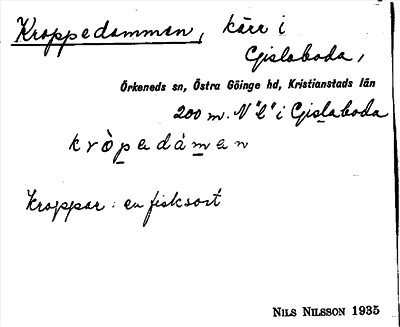 Kroppedammen, kärr i
Gislaboda,
Örkeneds sn, Östra Göinge hd, Kristianstads län
200 m. N "6" i Gislaboda
kròpedámen
Kroppar: en fisksort
NILS NILSSON 1935